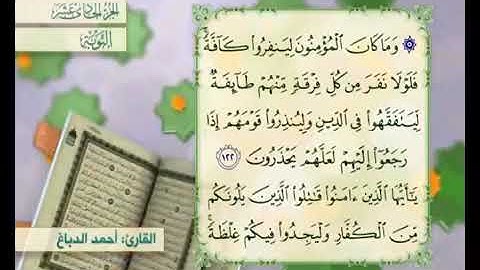 الجزء الحادي عشر
التوبة
۞ وَمَا كَانَ ٱلْمُؤْمِنُونَ لِيَنفِرُوا۟ كَآفَّةً ۚ
فَلَوْلَا نَفَرَ مِن كُلِّ فِرْقَةٍ مِّنْهُمْ طَآئِفَةٌ
لِّيَتَفَقَّهُوا۟ فِى ٱلدِّينِ وَلِيُنذِرُوا۟ قَوْمَهُمْ إِذَا
رَجَعُوٓا۟ إِلَيْهِمْ لَعَلَّهُمْ يَحْذَرُونَ ١٢٢
يَـٰٓأَيُّهَا ٱلَّذِينَ ءَامَنُوا۟ قَـٰتِلُوا۟ ٱلَّذِينَ يَلُونَكُم
مِّنَ ٱلْكُفَّارِ وَلْيَجِدُوا۟ فِيكُمْ غِلْظَةً ۚ
القارئ: أحمد الدباغ